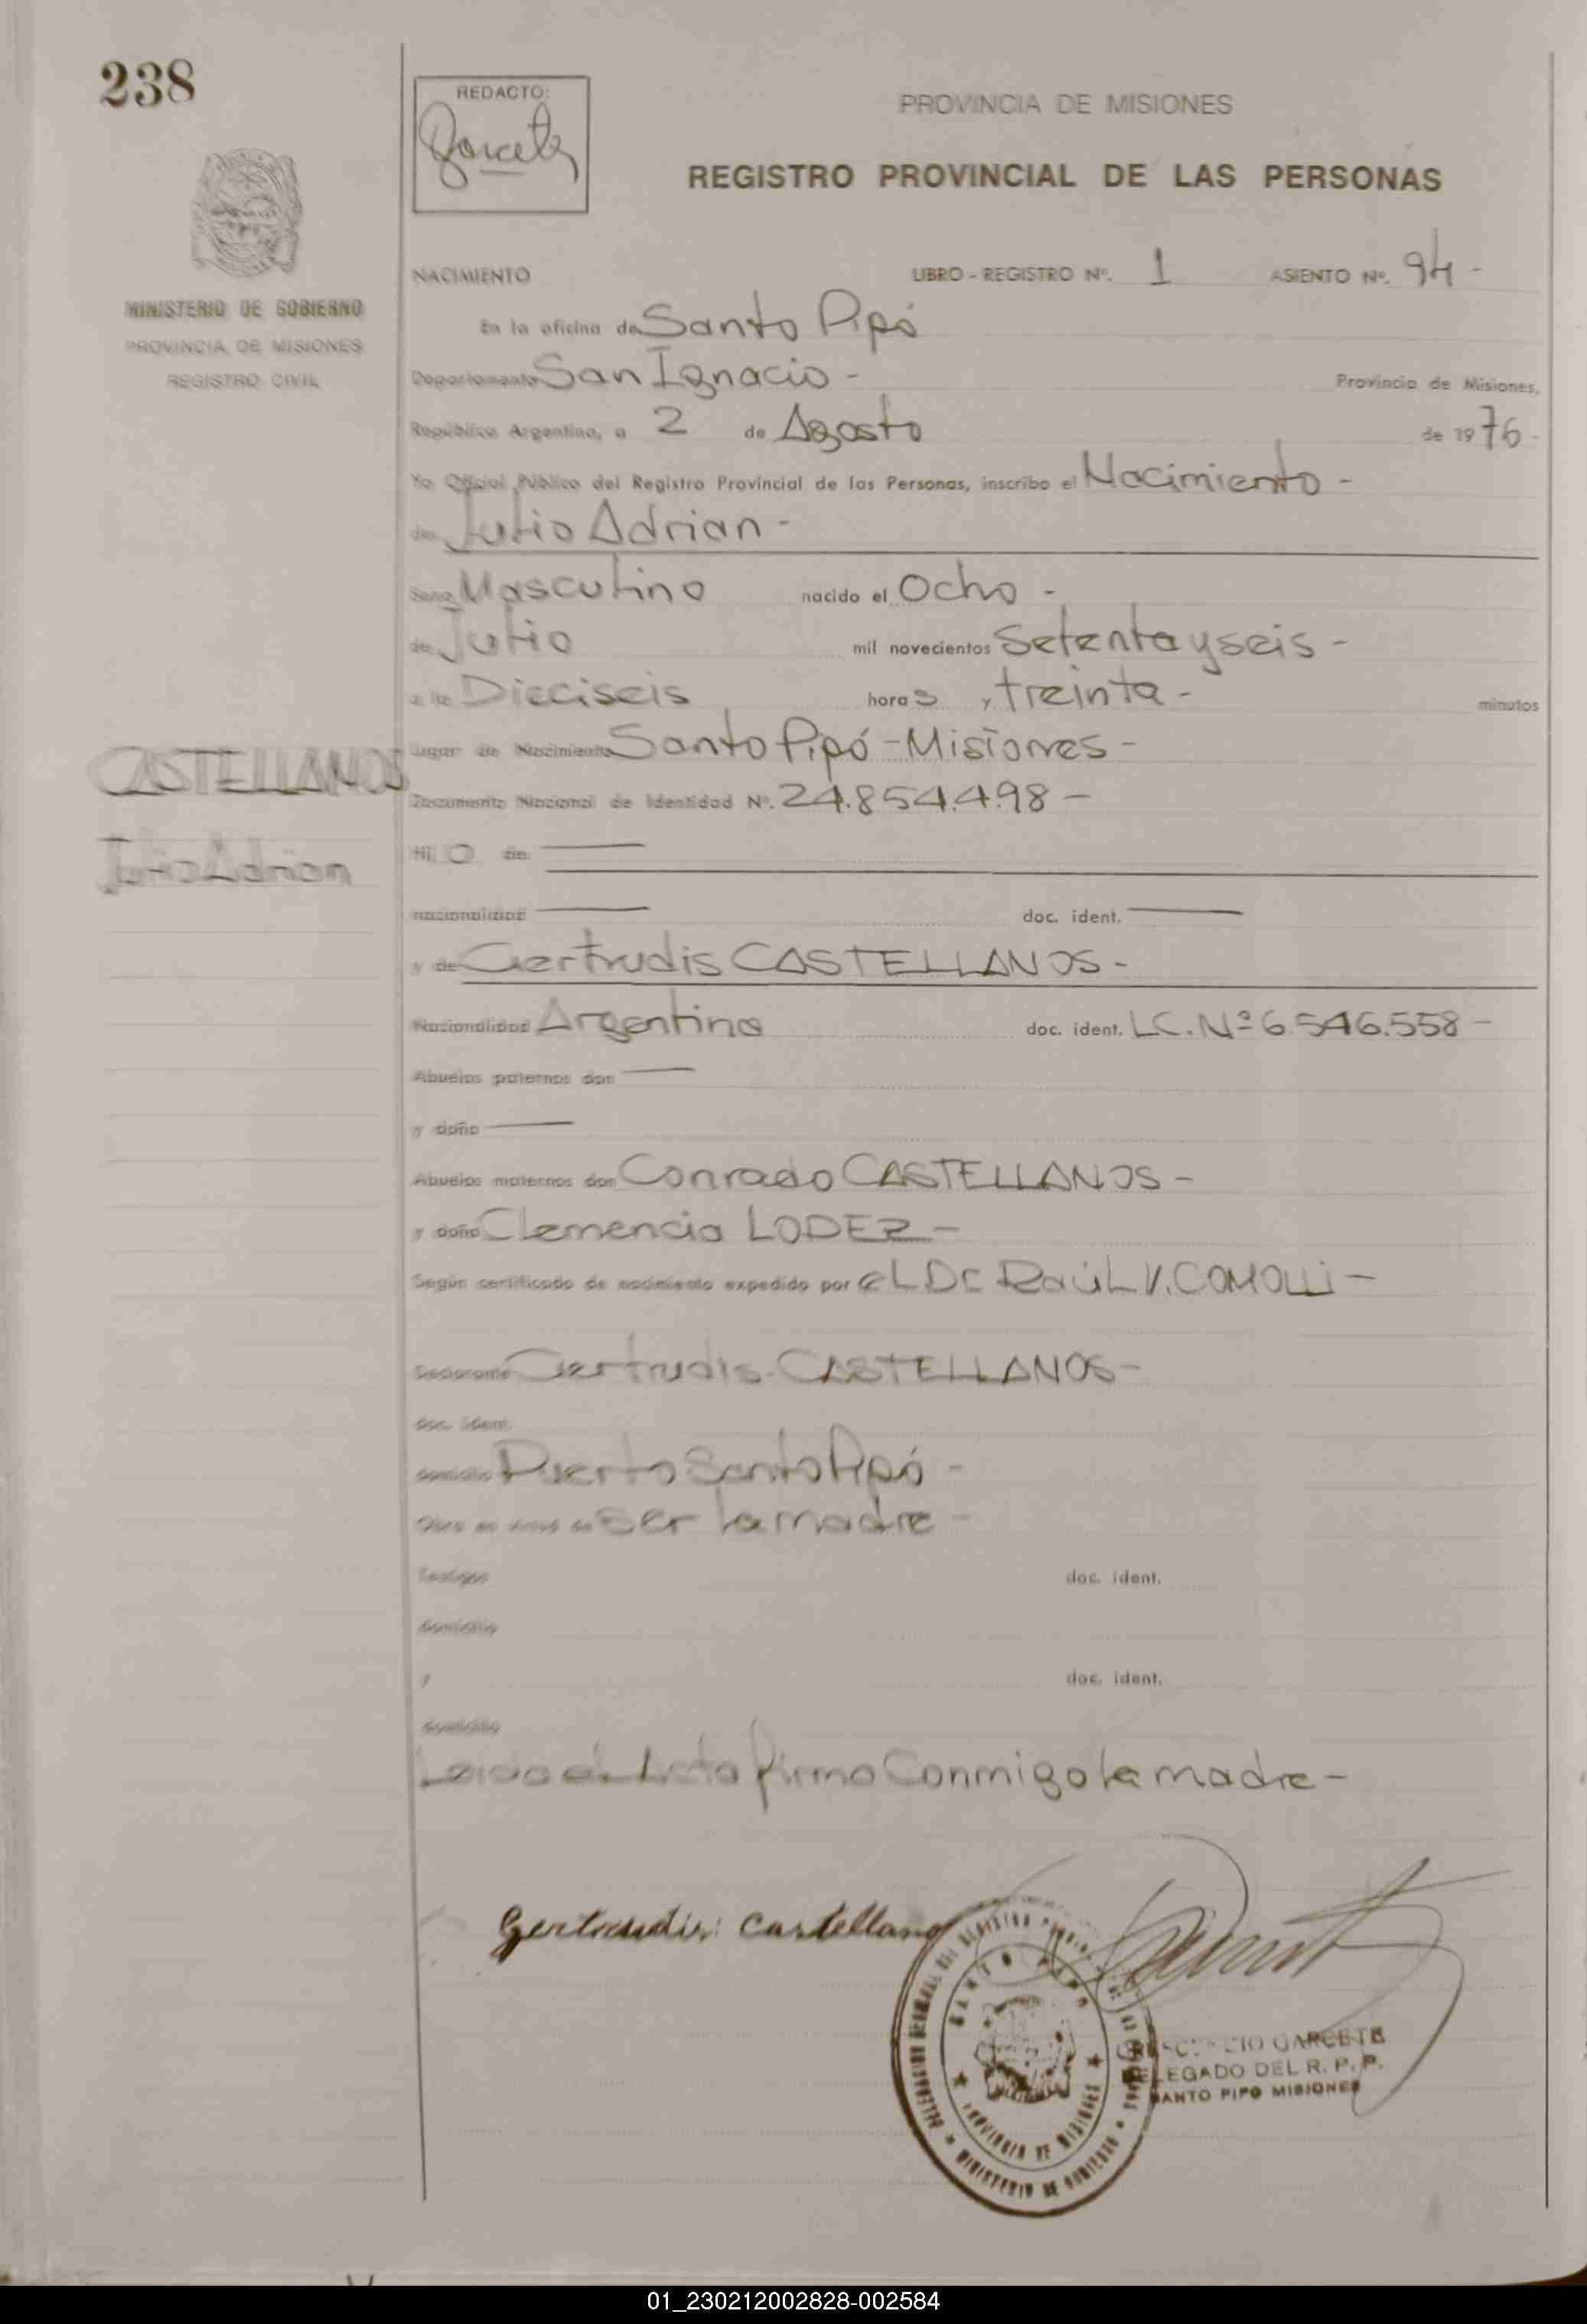 238
REDACTO:
Garcete
PROVINCIA DE MISIONES
REGISTRO PROVINCIAL DE LAS PERSONAS
MINISTERIO DE GOBIERNO
PROVINCIA DE MISIONES
REGISTRO CIVIL
NACIMIENTO LIBRO - REGISTRO Nº. 1 ASIENTO Nº. 94 -
En la oficina de Santo Pipó
Departamento San Ignacio - Provincia de Misiones,
República Argentina, a 2 de Agosto de 1976 -
Yo Oficial Público del Registro Provincial de las Personas, inscribo el Nacimiento -
de Julio Adrian -
Sexo Masculino nacido el Ocho -
de Julio mil novecientos Setenta y seis -
a las Dieciseis horas y treinta - minutos
Lugar de Nacimiento Santo Pipó - Misiones -
CASTELLANOS
Julio Adrian
Documento Nacional de Identidad Nº. 24.854.498 -
Hijo de
nacionalidad doc. ident.
y de Gertrudis CASTELLANOS -
Nacionalidad Argentina doc. ident. LC. Nº 6.546.558 -
Abuelos paternos don
y doña
Abuelos maternos don Conrado CASTELLANOS -
y doña Clemencia LOPEZ -
Según certificado de nacimiento expedido por el Dr Raúl V. COMOLLI -
Declarante Gertrudis CASTELLANOS -
doc. ident.
domicilio Puerto Santo Pipó -
Obra en virtud de ser la madre -
Testigos doc. ident.
domicilio
y doc. ident.
domicilio
Leida el Acta firma Conmigo la madre -
Gertrudis Castellano
SANTO PIPO
PROVINCIA DE MISIONES
MINISTERIO DE GOBIERNO
GARCETE
DELEGADO DEL R. P. P.
SANTO PIPO MISIONES
01_230212002828-002584